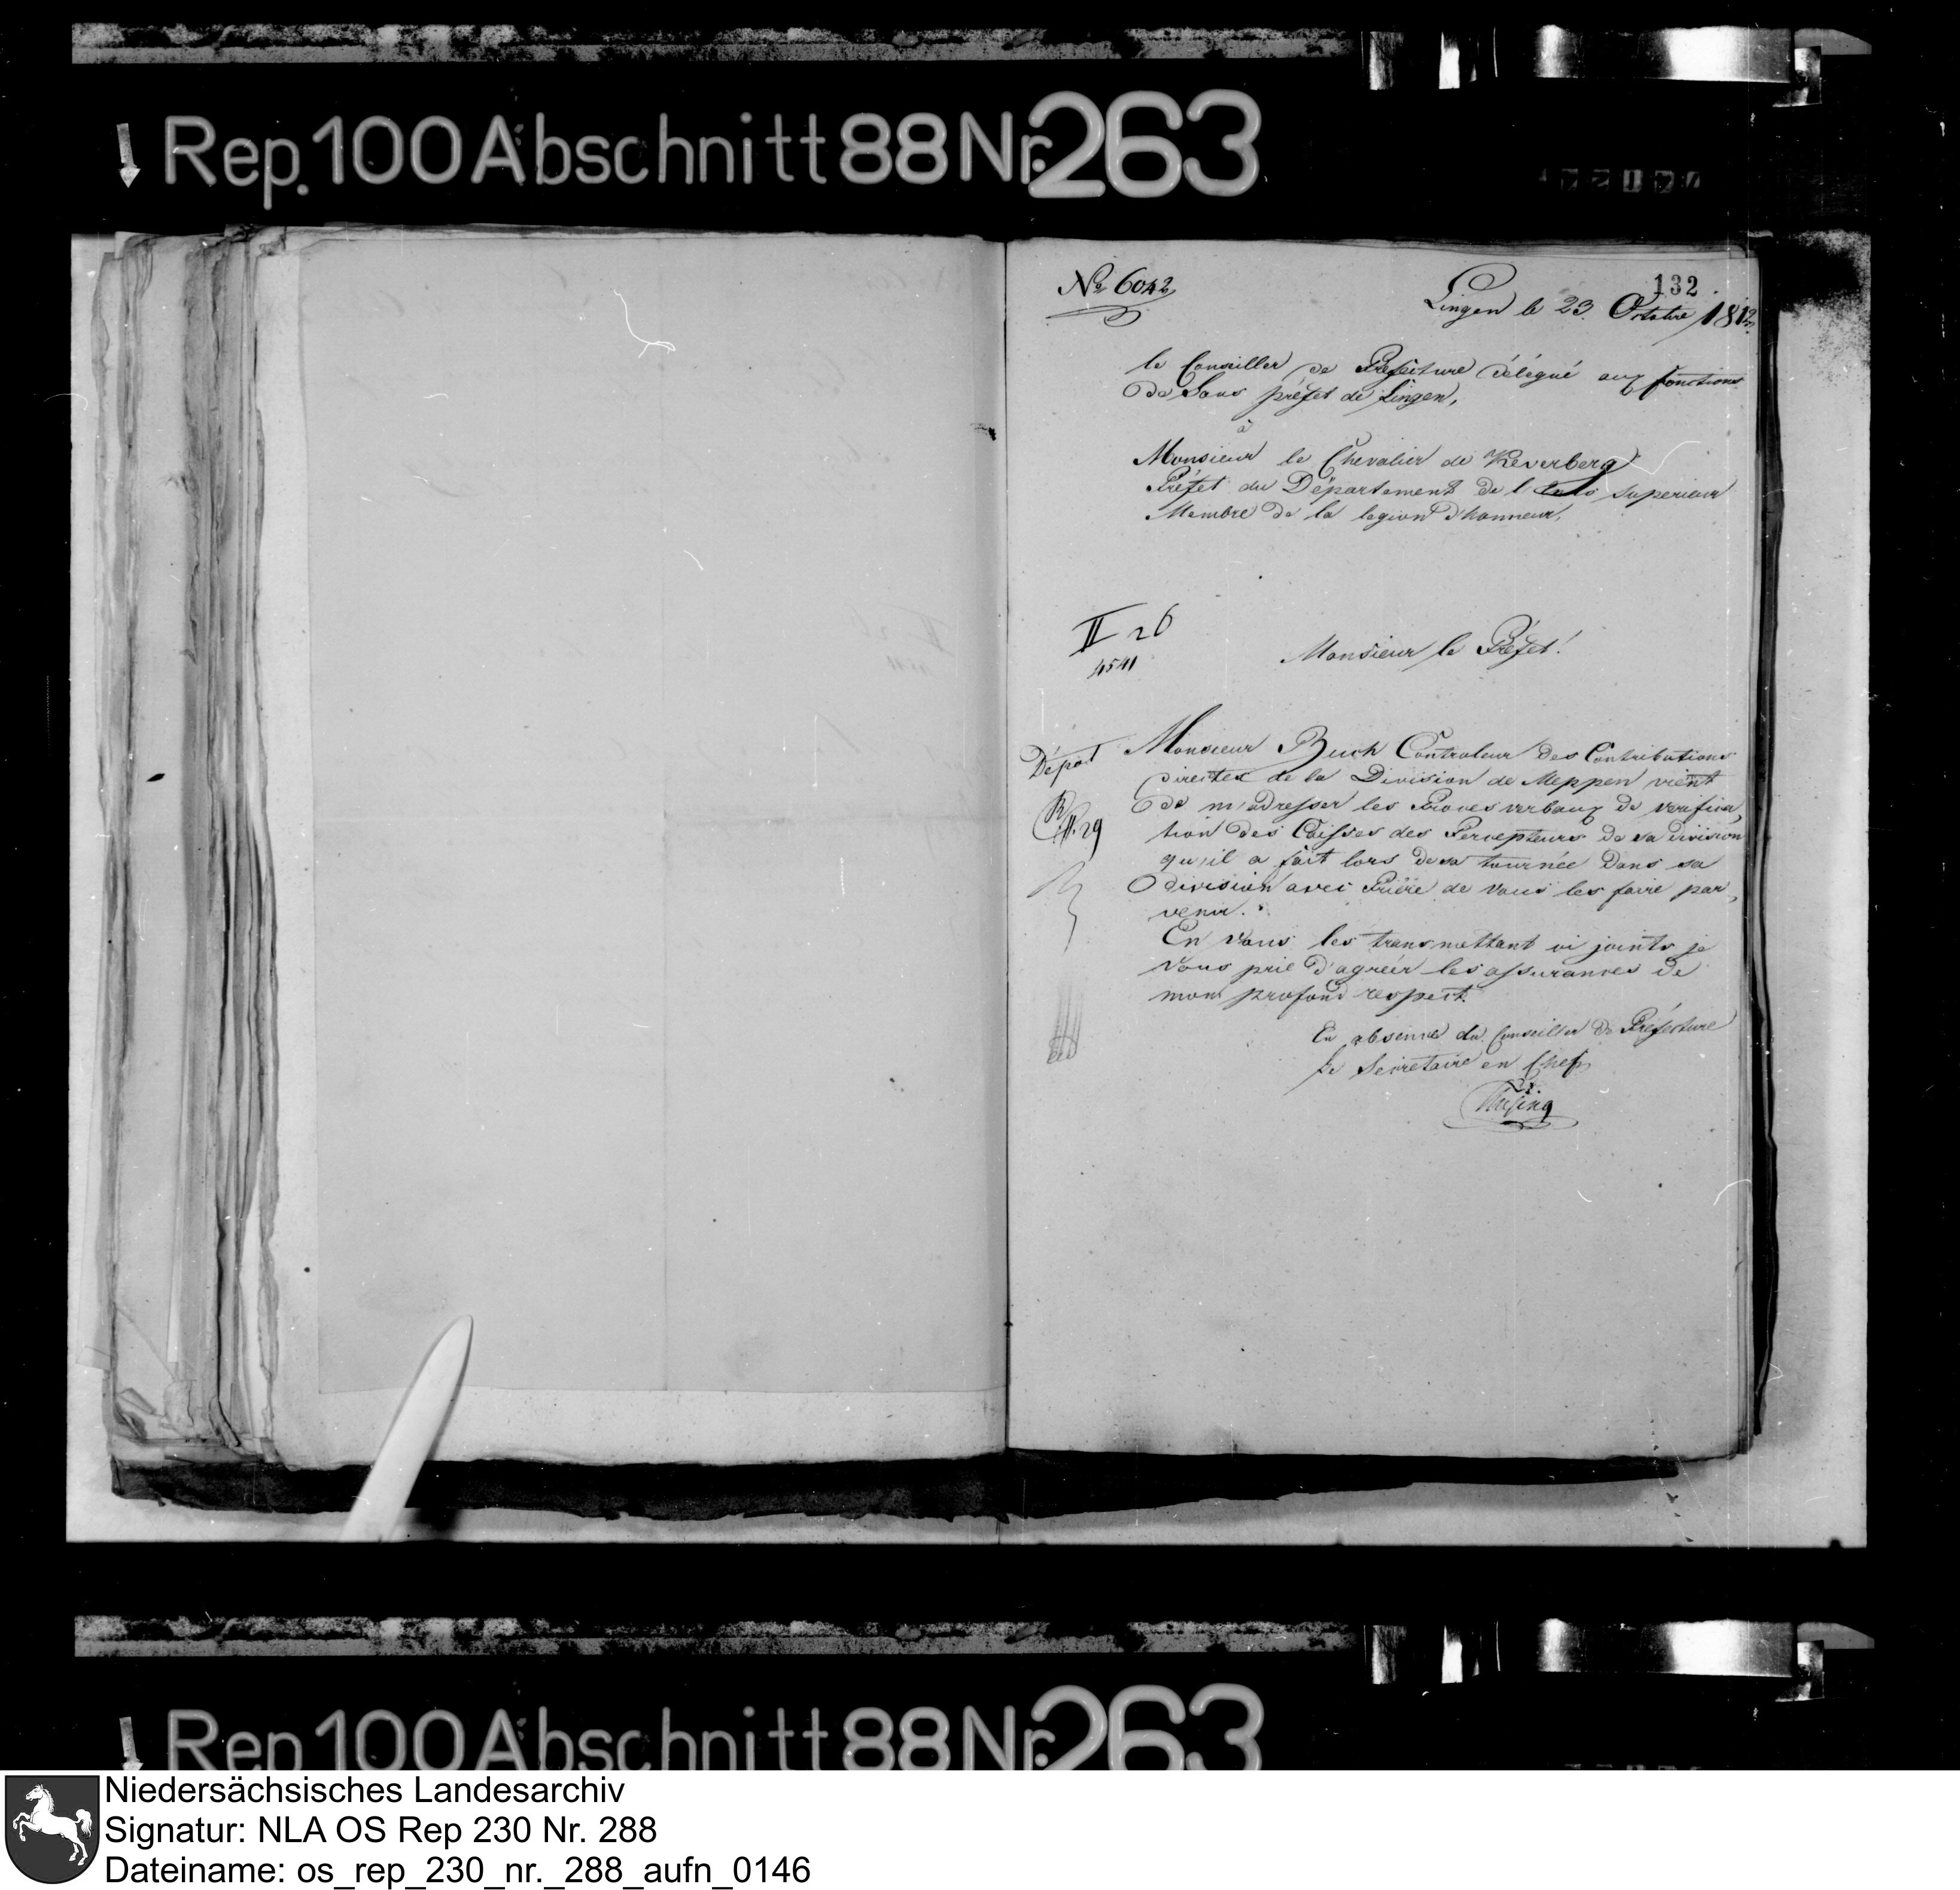 Rep. 100 Abschnitt 88 Nr. 263
No 6042
132
Lingen le 23. Octobre 1812
le Conseiller de Préfecture délégué aux fonctions
de Sous préfet de Lingen,
à
Monsieur le Chevalier de Keverberg
Préfet du Département de l'Ems superieur
Membre de la legion d'honneur,
II 26
4541
Monsieur le Préfet!
Dépot
29
Monsieur Buch Controleur des Contributions
directes de la Division de Meppen vient
de m'adresser les Proces verbaux de verifica
tion des Caisses des Percepteurs de sa division
qu'il a fait lors de sa tournée dans sa
division avec Prière de vous les faire par,
venir.
En vous les transmettant ci joints je
vous prie d'agréer les assurances de
mon profond respect.
En absence du Conseiller de Préfecture
Le Secretaire en Chef
Rep. 100 Abschnitt 88 Nr. 263
Niedersächsisches Landesarchiv
Signatur: NLA OS Rep 230 Nr. 288
Dateiname: os_rep_230_nr._288_aufn_0146